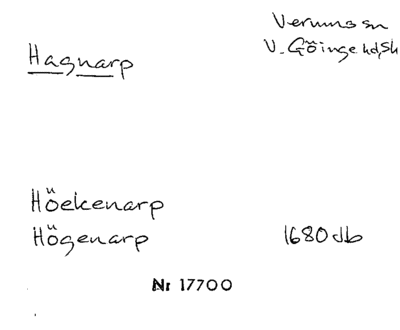 Hagnarp
Verums sn
V. Göinge hd, Sk
Höekenarp
Högenarp 1680 Jb
Nr 17700